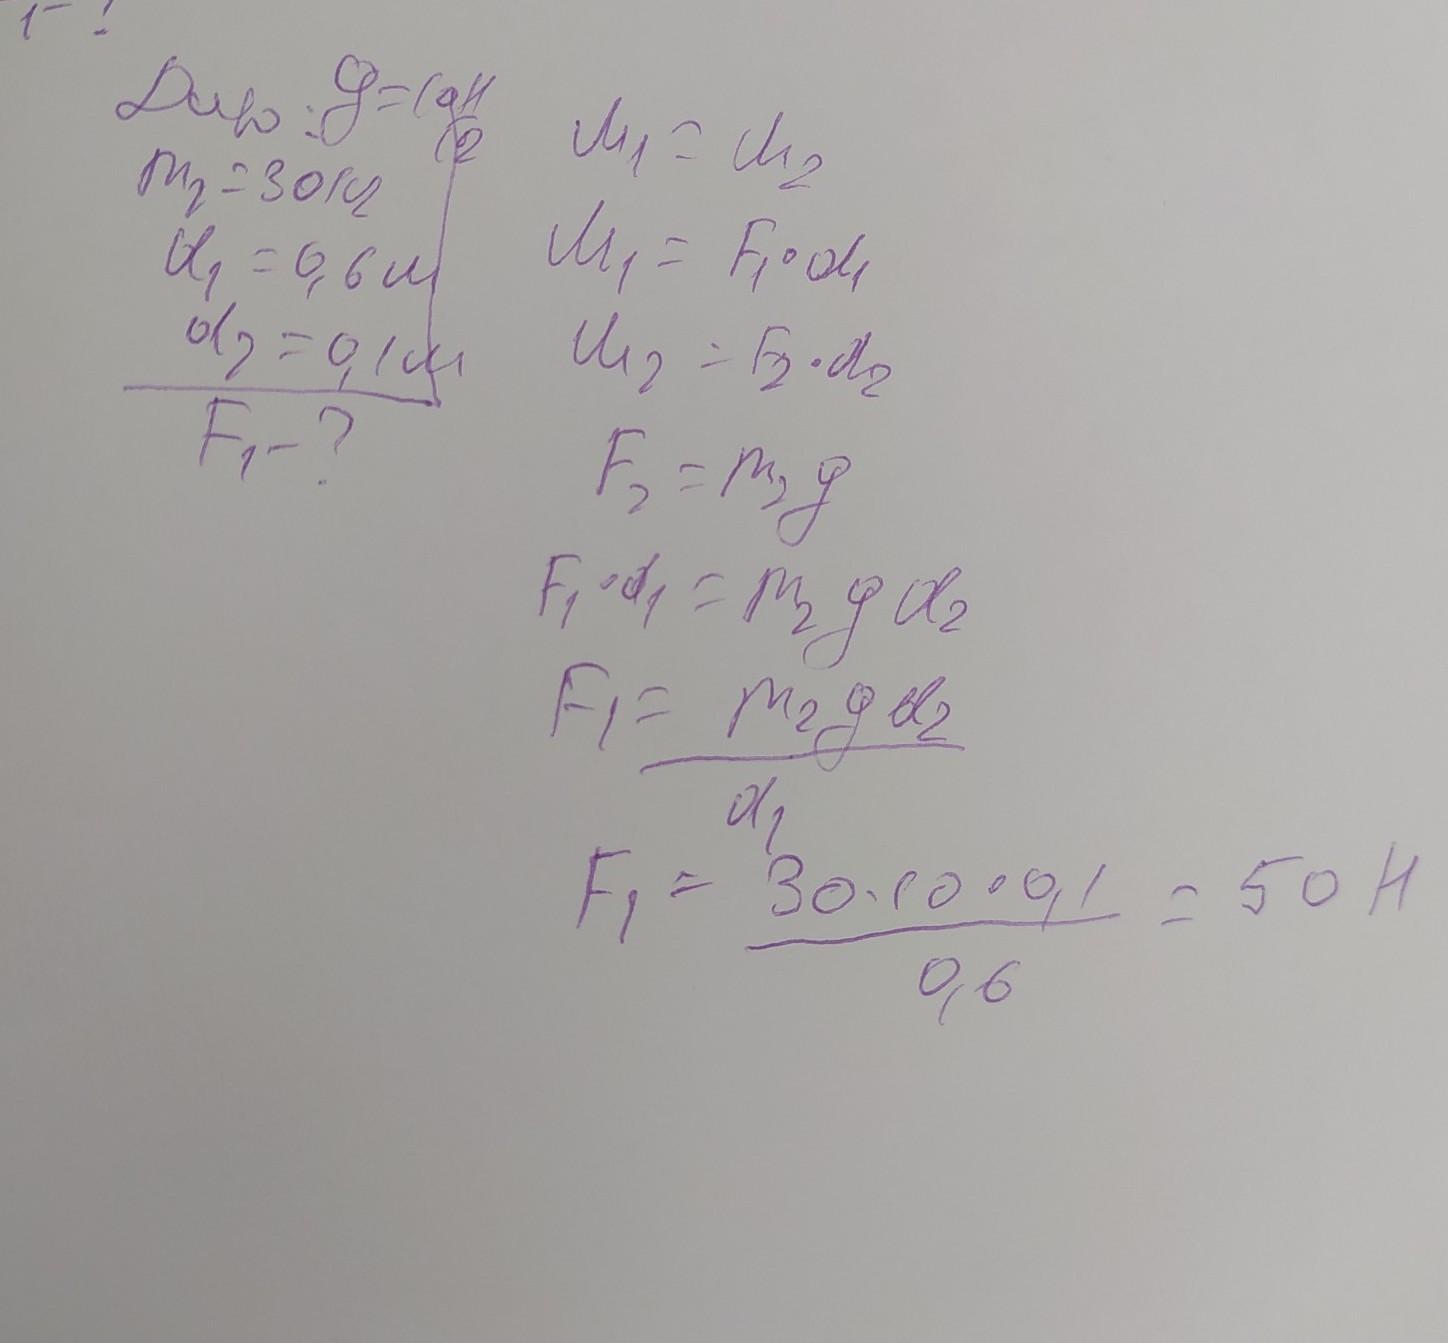 Дано: g=10Н/кг
m₂=30кг
d₁=0,6м
d₂=0,1м
F₁-?
M₁=M₂
M₁=F₁·d₁
M₂=F₂·d₂
F₂=m₂g
F₁·d₁=m₂gd₂
F₁=m₂gd₂/d₁
F₁=30·10·0,1/0,6=50Н